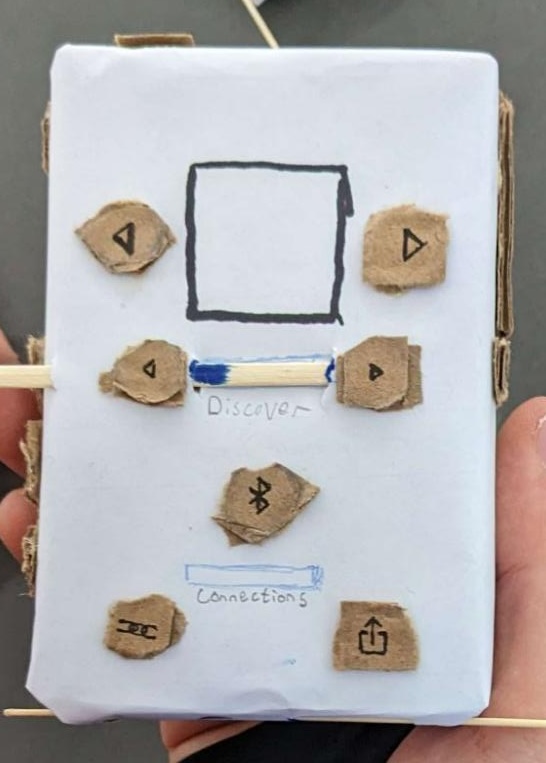 Discover
Connections